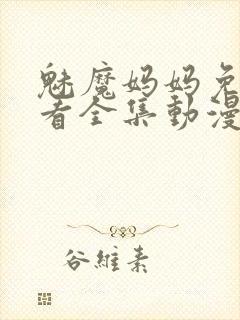 魅魔妈妈免
者全集動漫
谷維素